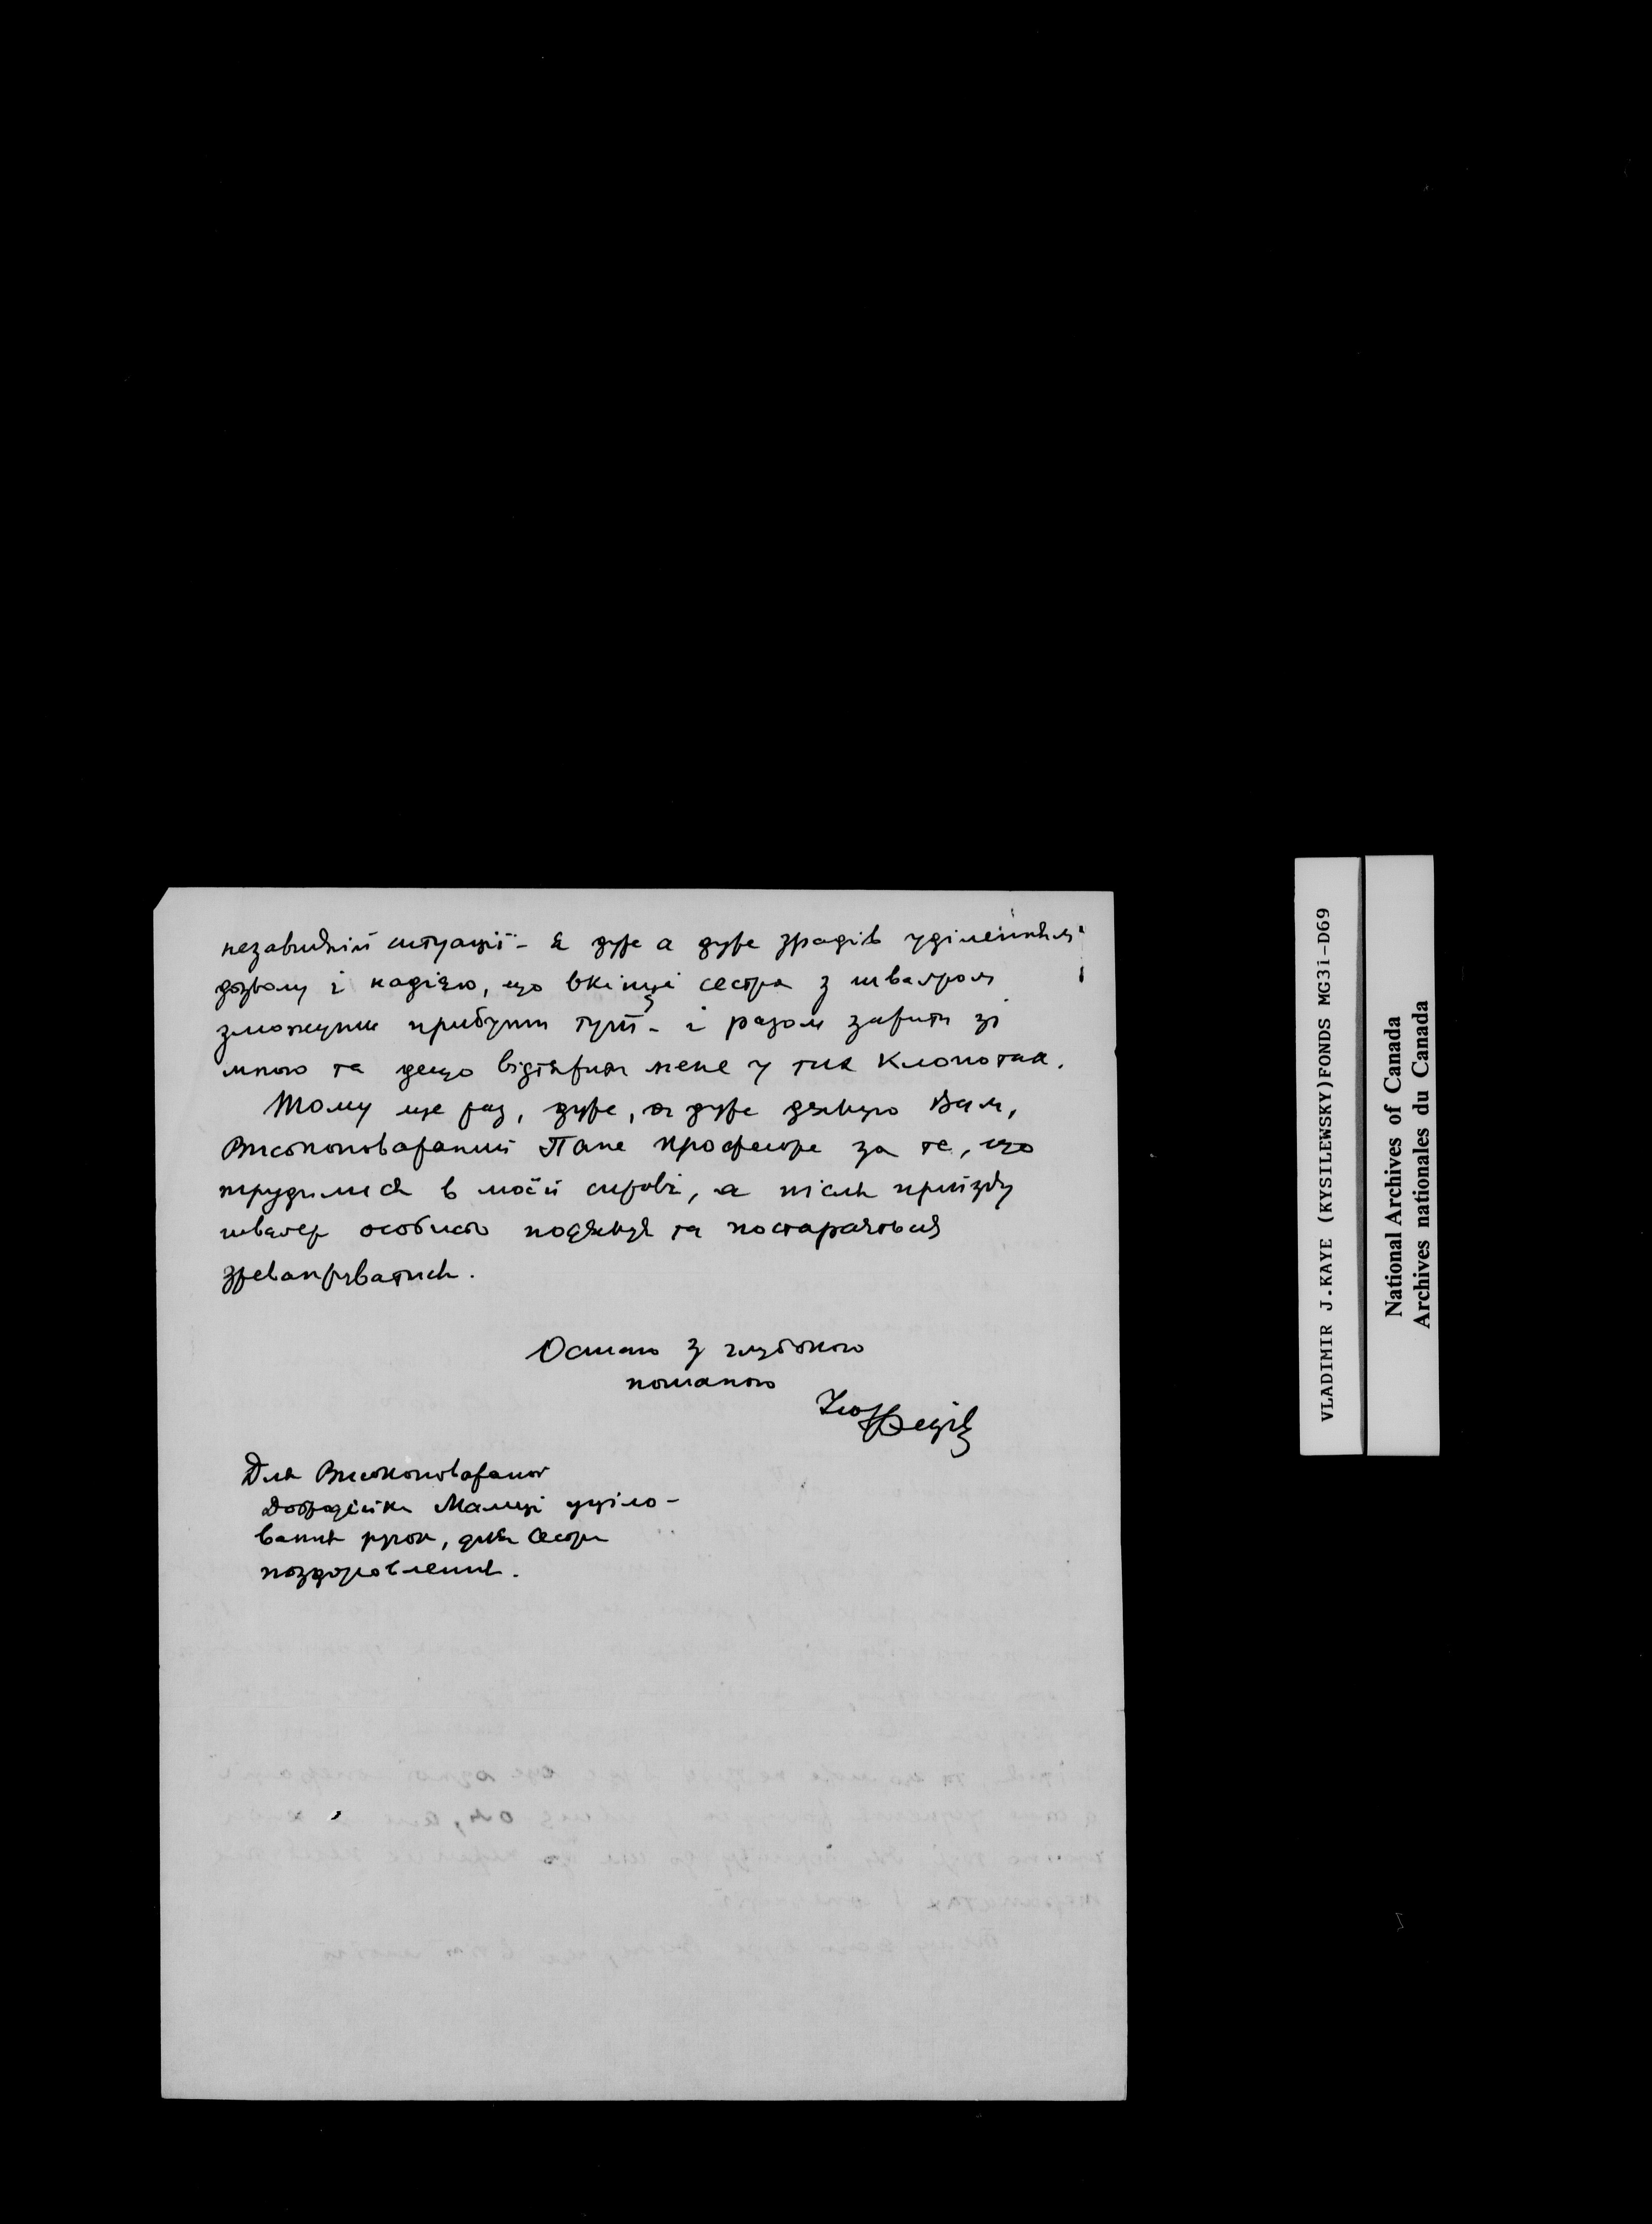 незавидній ситуації - Я дуже а дуже зрадів уділенням
дозволу і надіюю, що вкінці сестра з швагром
зможуть прибути тут - і разом зажити зі
мною та дещо відтяжить мене у тих клопотах.
Тому ще раз, дуже, а дуже дякую Вам,
Високоповажаний Пане професоре за те, що
трудилися в моєй справі, а після приїзду
швагер особисто подякує та постарається
зреванжуватися.
Остаю з глубокою
пошаною
Для Високоповажаної
Добродійки Мамці уціло-
вання ручок, для Сестри
поздоровлення.
VLADIMIR J.KAYE (KYSILEWSKY)FONDS MG31-D69
National Archives of Canada
Archives nationales du Canada